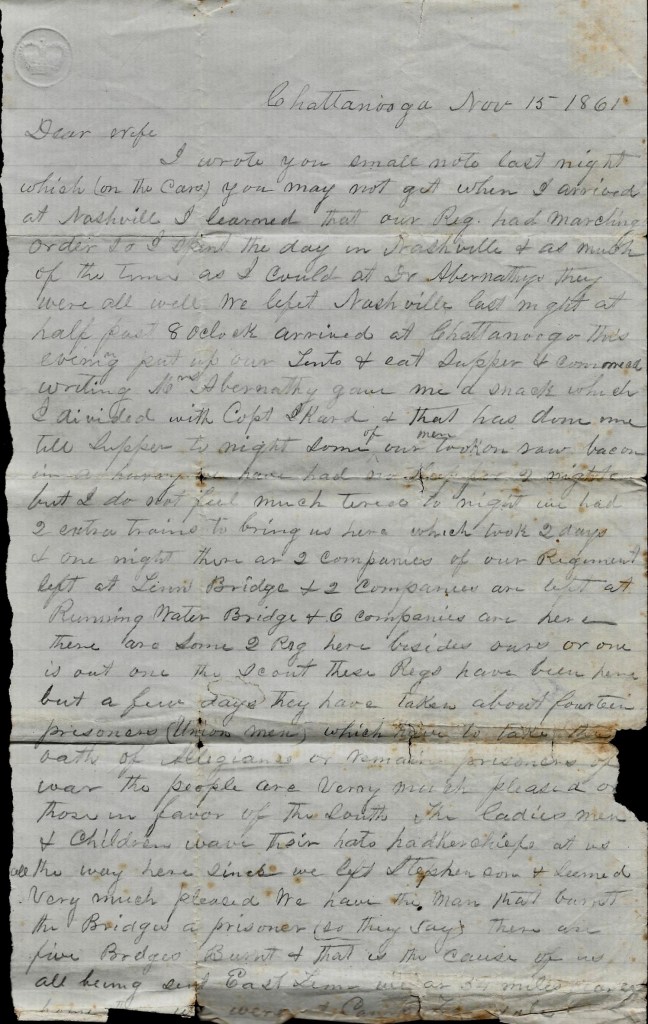 Chattanooga Nov 15 1861
Dear wife
I wrote you small note last night
which (on the Cars) you may not get when I arrived
at Nashville I learned that our Reg. had marching
order so I spent the day in Nashville & as much
of the time as I could at Dr Abernathys they
were all well We left Nashville last night at
half past 8 oclock arrived at Chattanooga this
evening put up our Tents & eat Supper &
writing Mrs Abernathy gave me a snack which
I divided with Capt & that has done me
till Supper to night some of our men took on raw bacon
in a have had no 2 nights
but I do not feel much to night we had
2 extra trains to bring us here which took 2 days
& one night there ar 2 companies of our Regiment
left at Bridge & 2 Companies are left at
Running Water Bridge & 6 companies are here
there are some 2 Reg here besides ours or one
is out one the scout these Regs have been here
but a few days they have taken about fourteen
prisoners (Union men) which have to take the
oath of Allegiance or remain prisoners of
war the people are Verry much pleased or
those in favor of the South The ladies men
& Children wave their hats hadkerchiefs at us
all the way here since we left Stephenson & seemed
Very much pleased We have the Man that burnt
the Bridges a prisoner (so they say) there are
five Bridges Burnt & that is the cause of us
all being sent East Tenn we ar miles